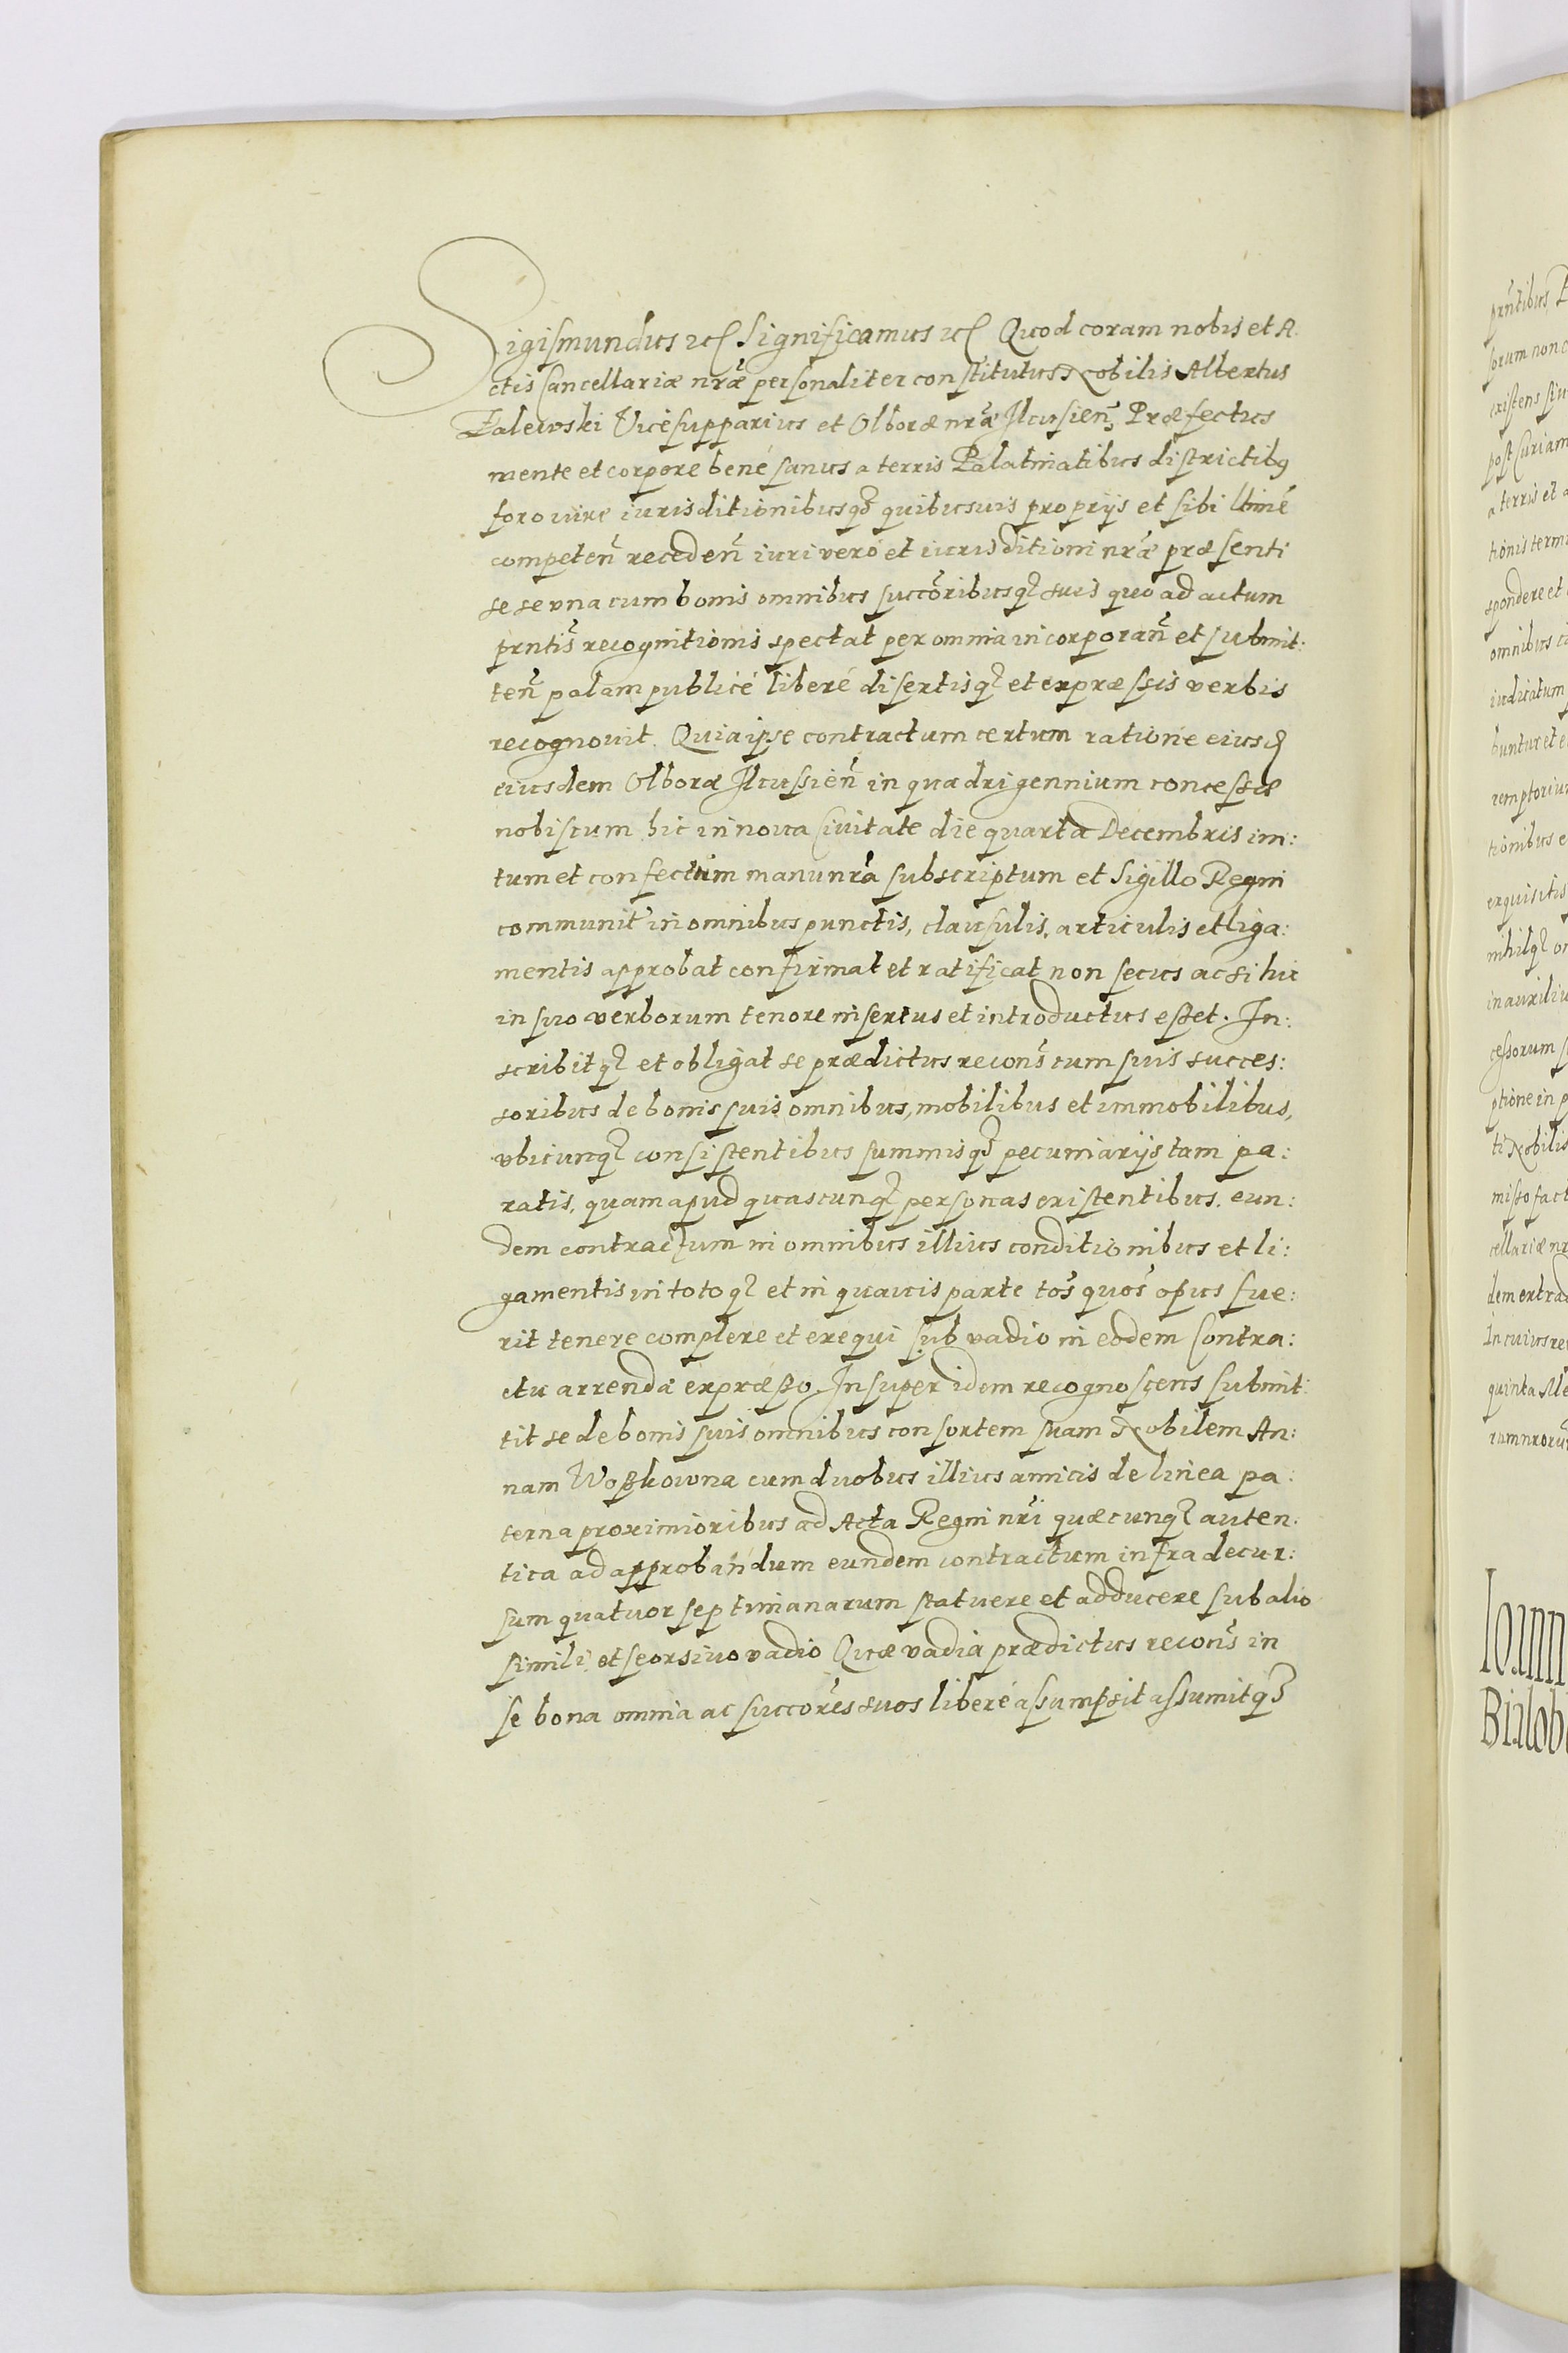 Sigismundus etc Significamus etc Quod coram nobis et A:
ctis Cancellariæ nrãe personaliter constitutus Nobilis Albertus
Zalewski Vicesupparius et Olboræ nrãe Ilcusień Præfectus
mente et corpore bené sanus a terris Palatinatibus districtibꝫ
foro iure iurisditionibusqꝫ quibusuis proprijs et sibi ltimé
competeñ recedeñ iuri veró et iurisditioni nrãe præsenti
se se vna cum bonis omnibus succõribusqꝫ suis quo ad actum
prntĩs recognitionis spectat per omnia incorporañ et submit:
teñ palam publicé liberé disertisqꝫ et expræssis verbis
recognouit. Quia ipse contractum certum ratione eiusd
eiusdem Olboræ Ilcussień in quadrigennium concessæ
nobiscum hic in noua Ciuitate die quarta Decembris ini:
tum et confectum manu nrã subscriptum et Sigillo Regni
communit in omnibus punctis, clausulis, articulis et liga:
mentis approbat confirmat et ratificat non secus ac si hic
in suo verborum tenore insertus et introductus esset. In:
scribitqꝫ et obligat se prædictus recoñs cum suis succes:
soribus de bonis suis omnibus, mobilibus et immobilibus,
vbicunqꝫ consistentibus summisqꝫ pecuniarijs tam pa:
ratis, quam apud quascunqꝫ personas existentibus, eun:
dem contractum in omnibus illius conditionibus et li:
gamentis in totoqꝫ et in quauis parte tõs quõs opus fue:
rit tenere complere et exequi sub vadio in eodem Contra:
ctu arrendæ expræsso. Insuper idem recognoscens submit:
tit se de bonis suis omnibus consortem suam Nobilem An:
nam Woßkowna cum duobus illius amicis de linea pa:
terna proximioribus ad Acta Regni nrĩ quæcunqꝫ auten:
tica ad approbandum eundem contractum infra decur:
sum quatuor septimanarum statuere et adducere sub alio
simili et seorsiuo vadio Quæ vadia prædictus recoñs in
se bona omnia ac succõres suos liberé assumpsit assumitqꝫ